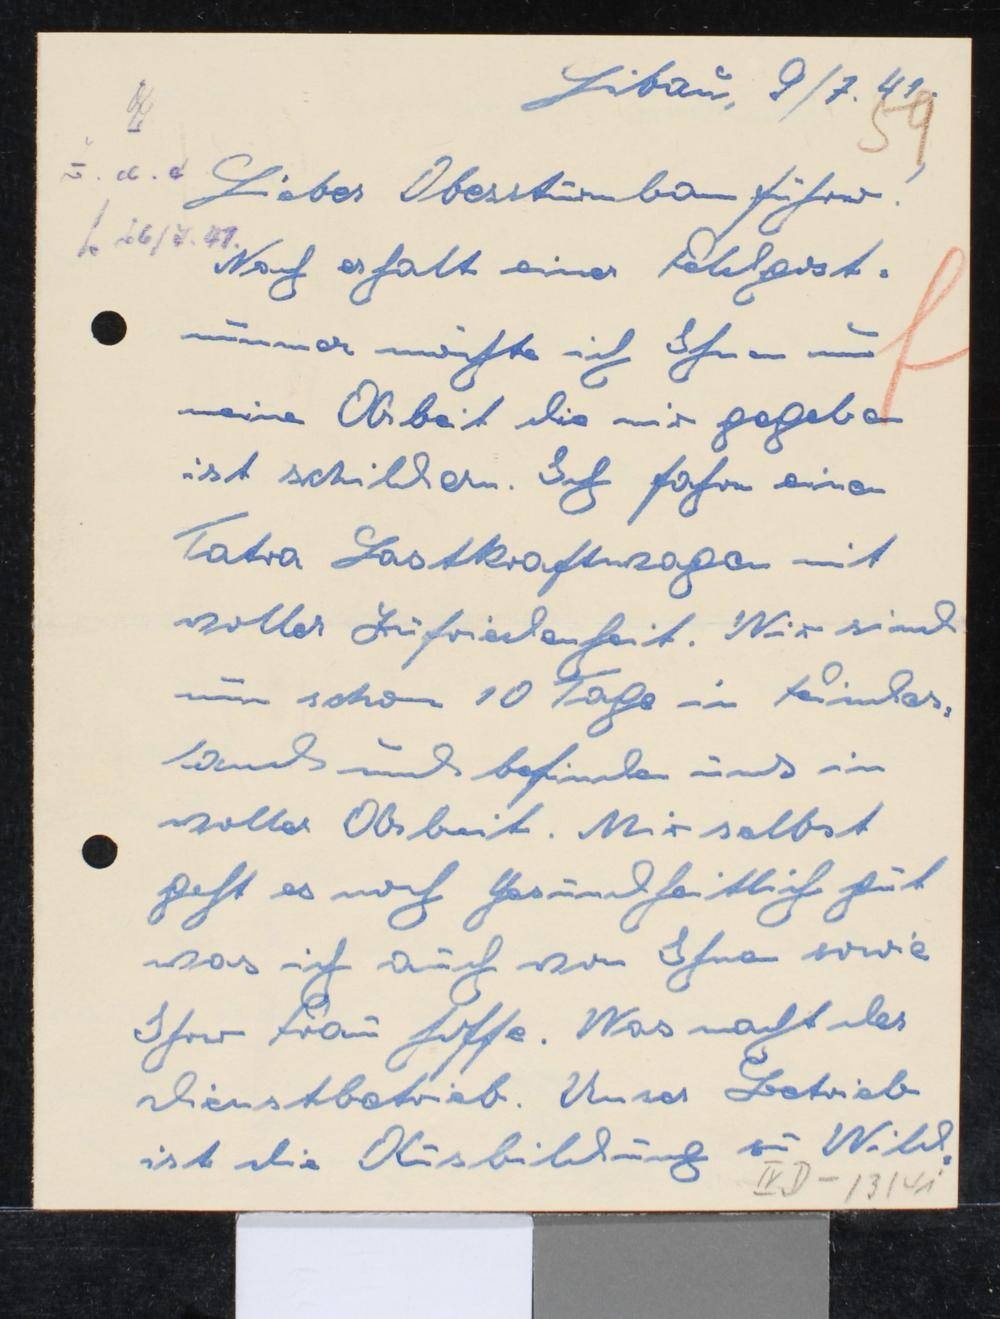 Libau, 9/7.41.
59
Lieber Obersturmbannführer!
26/7.41.
Nach erhalt einer Feldpost-
nummer möchte ich Ihnen nun
meine Arbeit die mir gegeben
ist schildern. Ich fahre einen
Tatra Lastkraftwagen mit
voller Zufriedenheit. Wir sind
nun schon 10 Tage in Feindes-
land und befinden uns in
voller Arbeit. Mir selbst
geht es noch Gesundheitlich gut
was ich auch von Ihnen sowie
Ihrer Frau hoffe. Was macht der
Dienstbetrieb. Unser Betrieb
ist die Ausbildung zu Wild-
IV D - 13/41